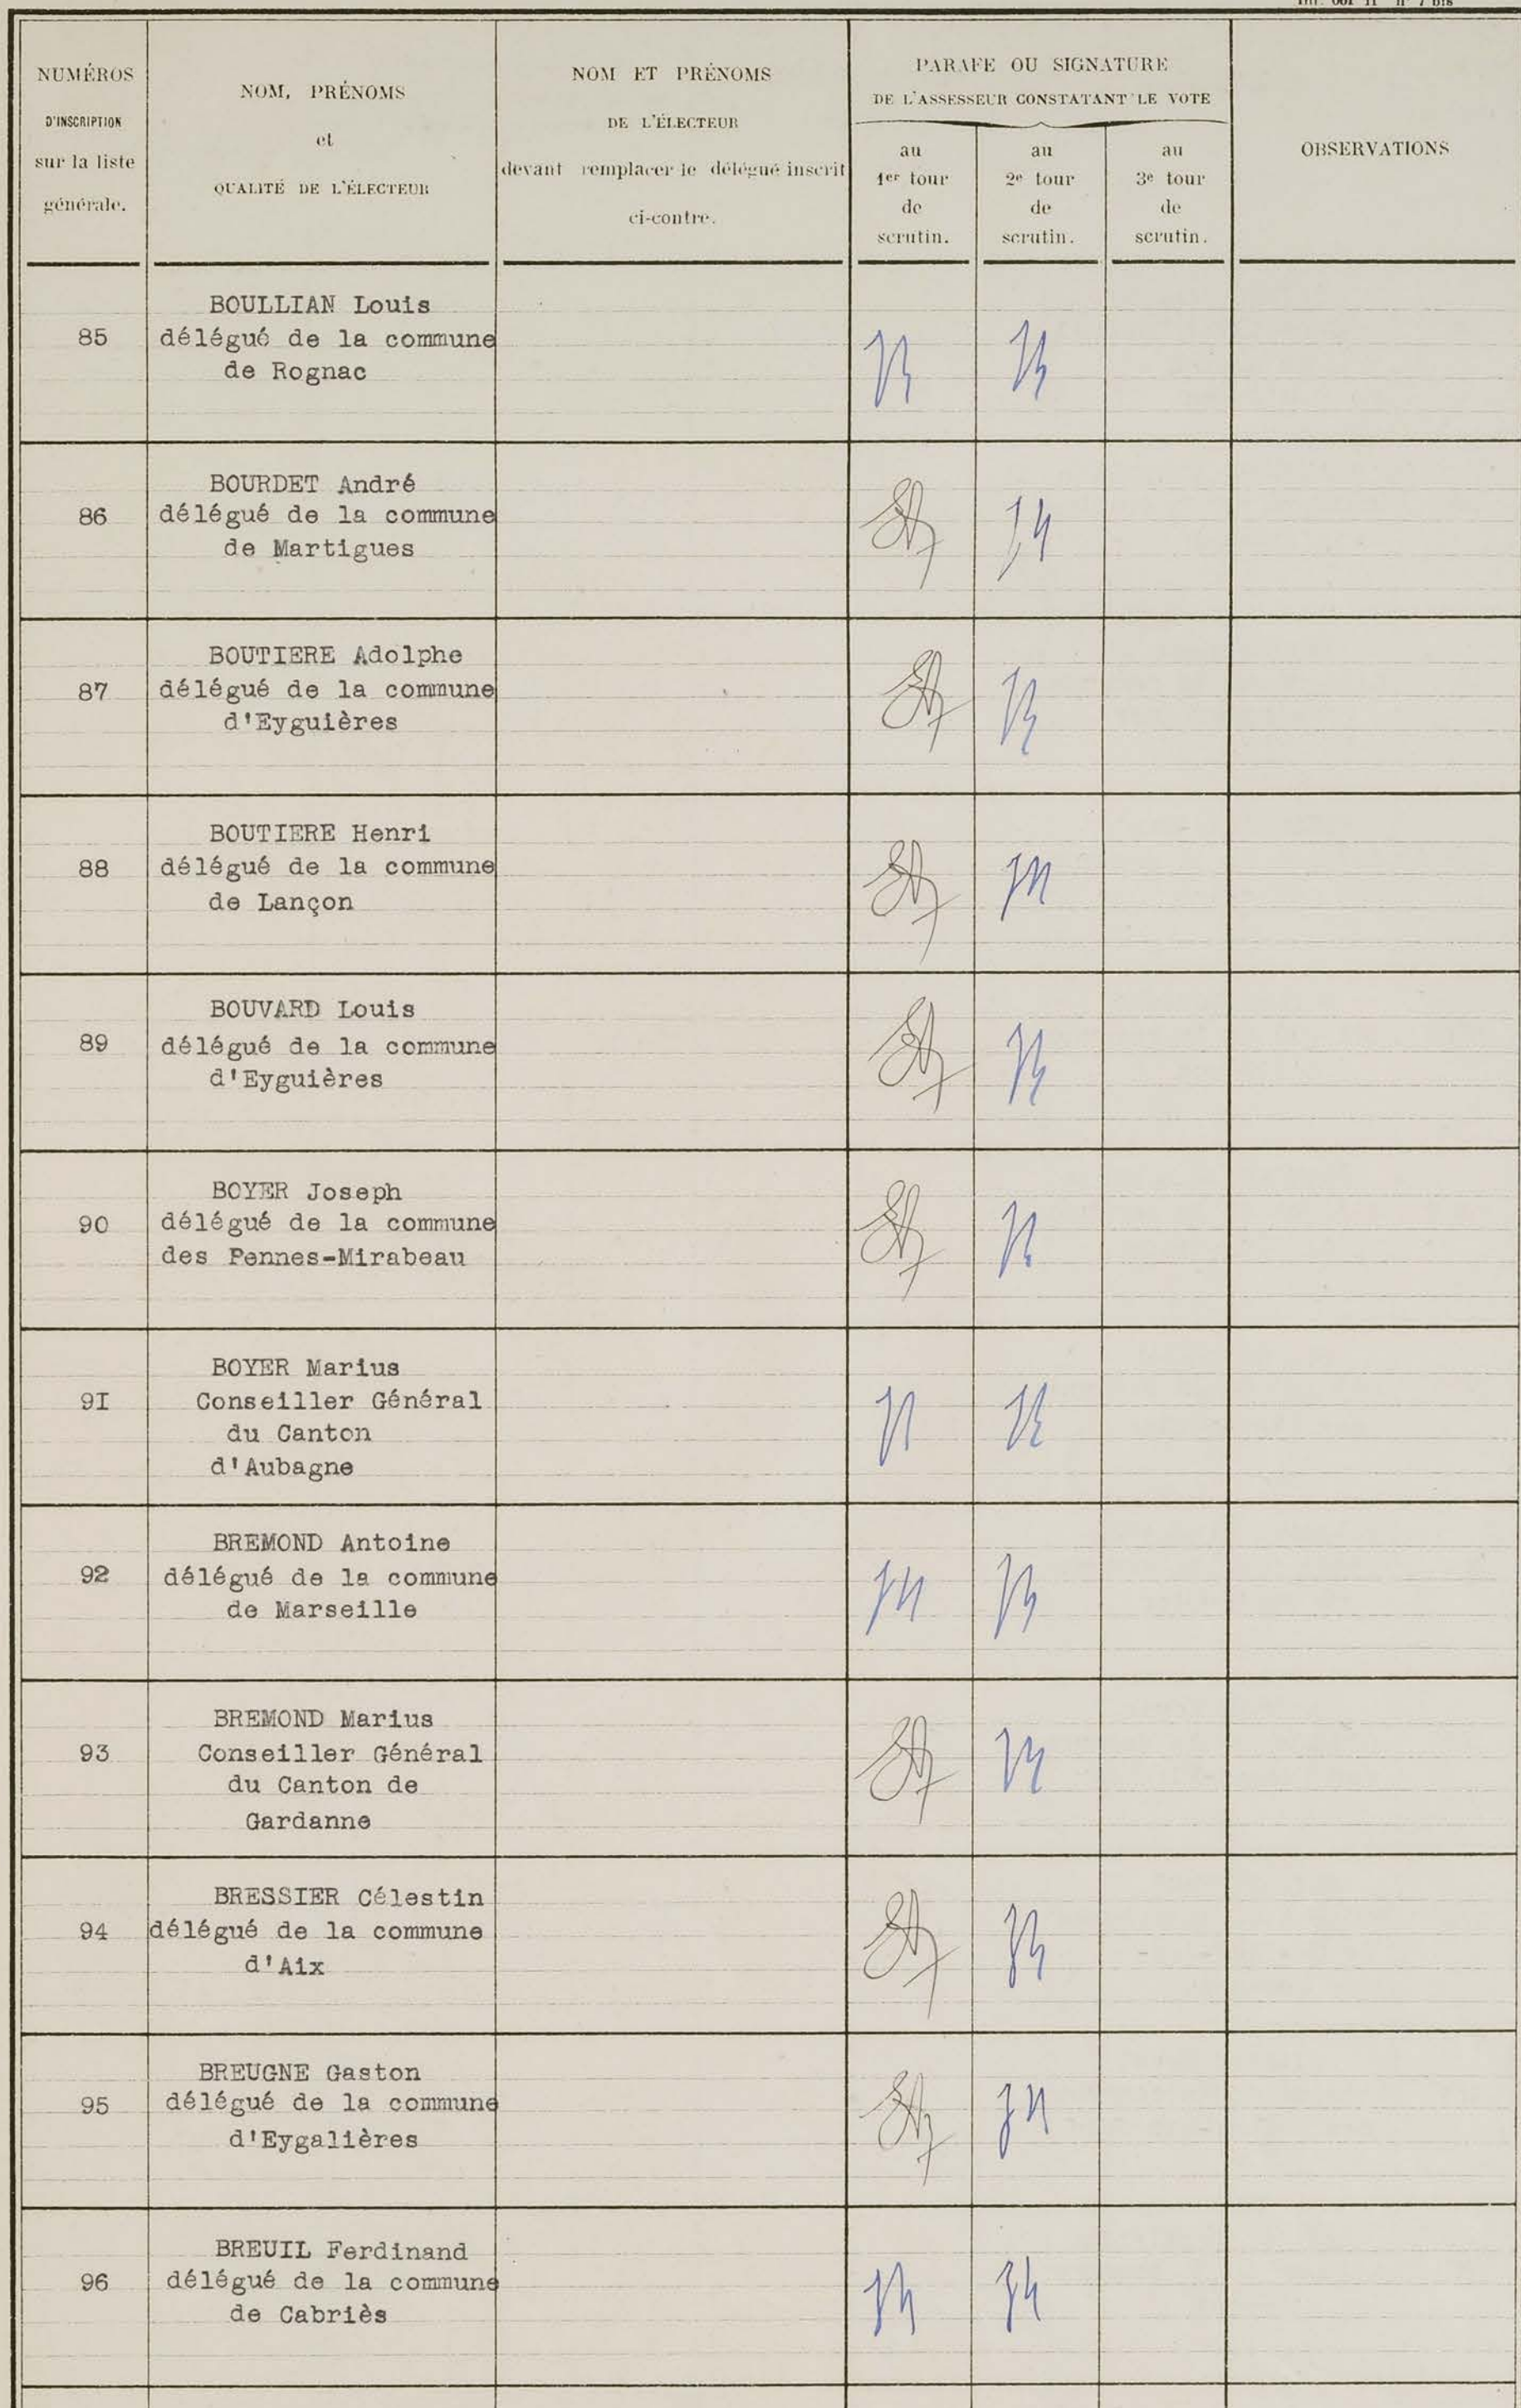 NUMÉROS
D'INSCRIPTION
sur la liste
générale.
NOM, PRÉNOMS
et
QUALITÉ DE L'ÉLECTEUR
NOM ET PRÉNOMS
DE L'ÉLECTEUR
devant remplacer le délégué inscrit
ci-contre.
PARAFE OU SIGNATURE
DE L'ASSESSEUR CONSTATANT LE VOTE
au
1er tour
de
scrutin.
au
2e tour
de
scrutin.
au
3e tour
de
scrutin.
OBSERVATIONS
85
BOULLIAN Louis
délégué de la commune
de Rognac
86
BOURDET André
délégué de la commune
de Martigues
87
BOUTIERE Adolphe
délégué de la commune
d'Eyguières
88
BOUTIERE Henri
délégué de la commune
de Lançon
89
BOUVARD Louis
délégué de la commune
d'Eyguières
90
BOYER Joseph
délégué de la commune
des Pennes-Mirabeau
9I
BOYER Marius
Conseiller Général
du Canton
d'Aubagne
92
BREMOND Antoine
délégué de la commune
de Marseille
93
BREMOND Marius
Conseiller Général
du Canton de
Gardanne
94
BRESSIER Célestin
délégué de la commune
d'Aix
95
BREUGNE Gaston
délégué de la commune
d'Eygalières
96
BREUIL Ferdinand
délégué de la commune
de Cabriès